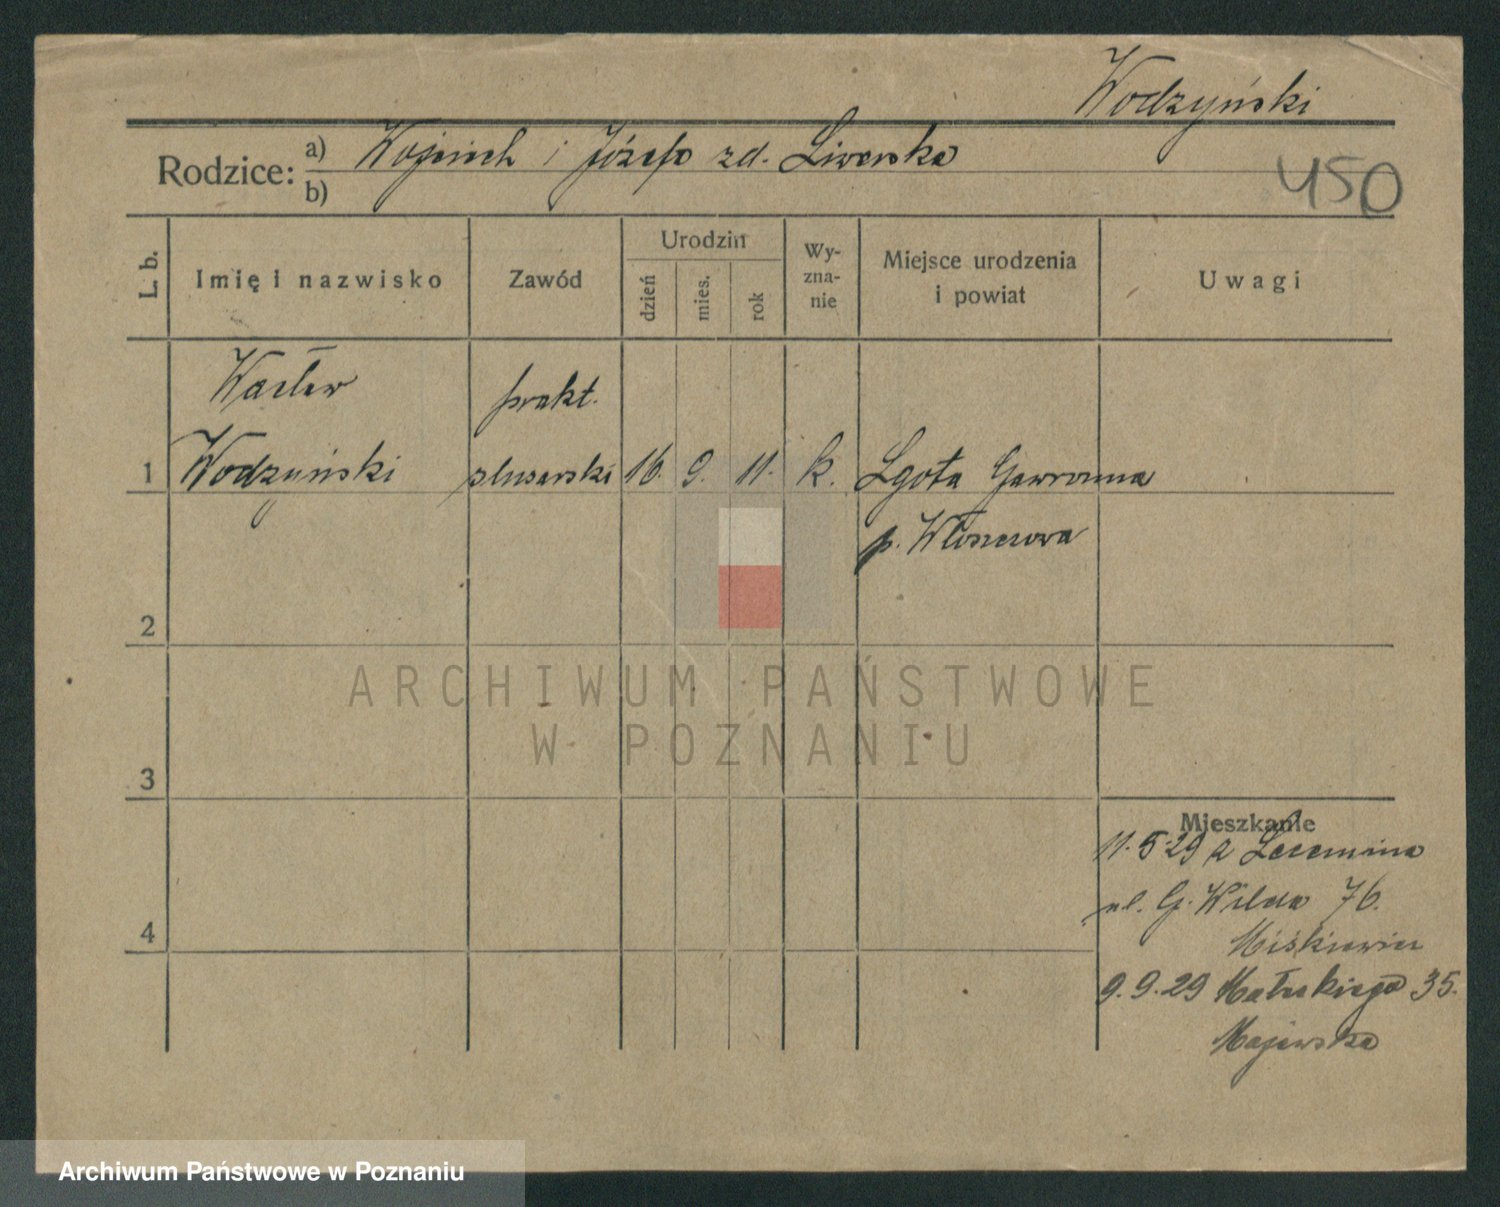 Wodzyński
Rodzice: a) Wojciech i Józefa zd. Siwerska
b)
450
L. b.
Imię i nazwisko
Zawód
Urodzin
dzień
mies.
rok
Wy-
zna-
nie
Miejsce urodzenia
i powiat
Uwagi
Wacław
prakt.
1 Wodzyński ślusarski 16. 9. 11. k. Lgota Gawronna
p. Włoszczowa
2
3
4
Mieszkanie
11.5.29 z
ul. G. Wilda 76.
Miśkiewicz
9.9.29 Małeckiego 35.
Majewska
ARCHIWUM PAŃSTWOWE
W POZNANIU
Archiwum Państwowe w Poznaniu